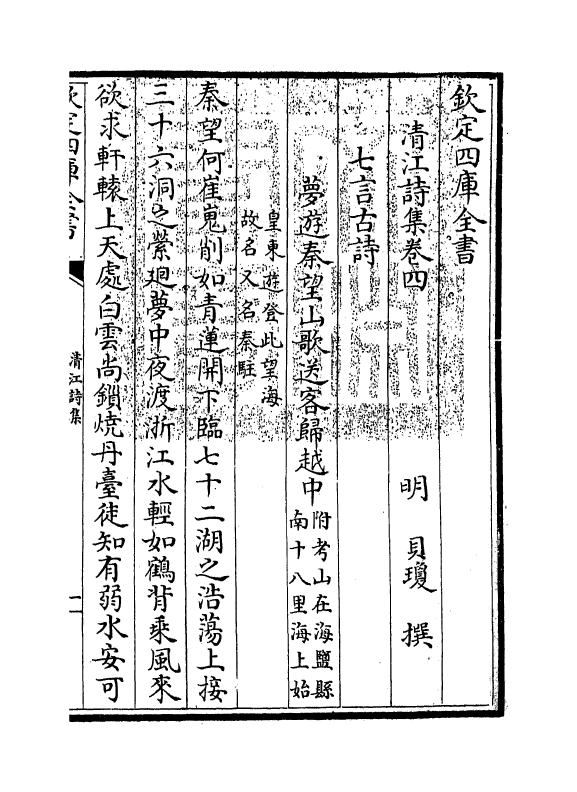 欽定四庫全書
清江詩集卷四
明 貝瓊 撰
七言古詩
夢遊秦望山歌送客歸越中
附考山在海鹽縣
南十八里海上始
皇東遊登此望海
故名又名秦駐
秦望何崔嵬削如青蓮開下臨七十二湖之浩蕩上接
三十六洞之縈廻夢中夜渡浙江水輕如鶴背乘風來
欲求軒轅上天處白雲尚鎖燒丹臺徒知有弱水安可
欽定四庫全書
清江詩集
一